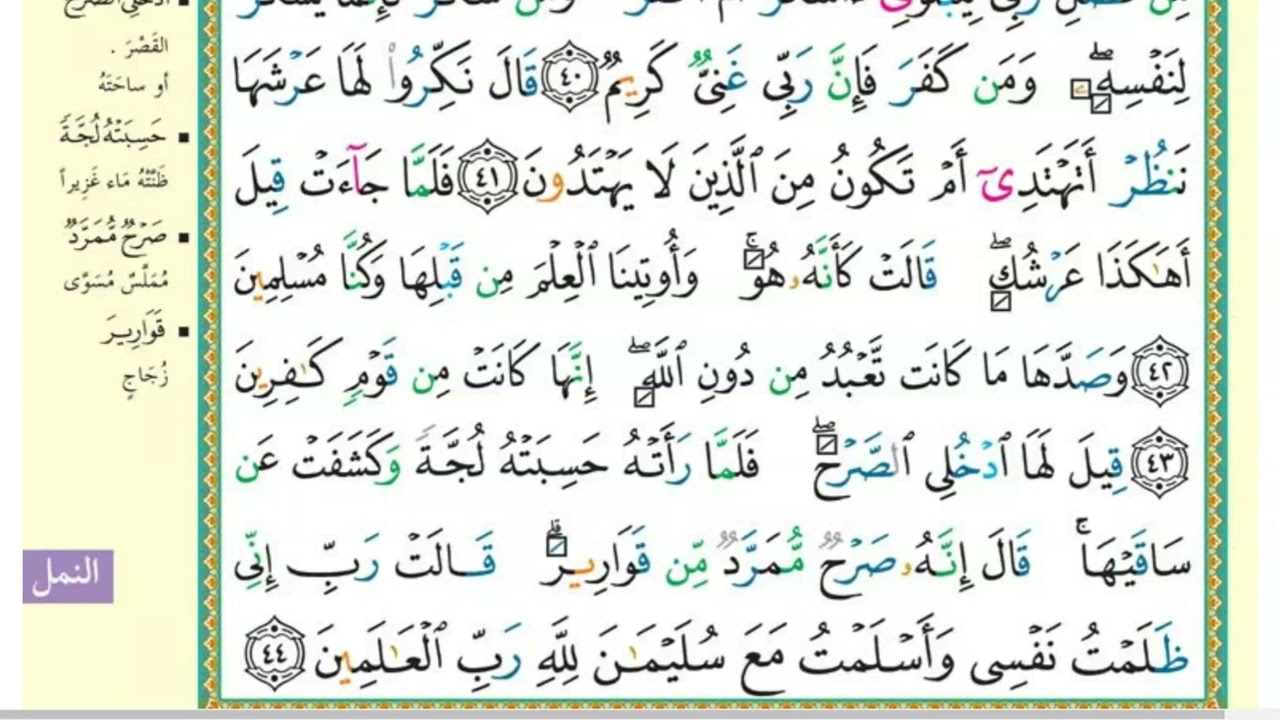 لِنَفْسِهِۦ ۖ وَمَن كَفَرَ فَإِنَّ رَبِّى غَنِىٌّ كَرِيمٌ ٤٠ قَالَ نَكِّرُوا۟ لَهَا عَرْشَهَا
نَنظُرْ أَتَهْتَدِىٓ أَمْ تَكُونُ مِنَ ٱلَّذِينَ لَا يَهْتَدُونَ ٤١ فَلَمَّا جَآءَتْ قِيلَ
أَهَٰكَذَا عَرْشُكِ ۖ قَالَتْ كَأَنَّهُۥ هُوَ ۚ وَأُوتِينَا ٱلْعِلْمَ مِن قَبْلِهَا وَكُنَّا مُسْلِمِينَ
٤٢ وَصَدَّهَا مَا كَانَت تَّعْبُدُ مِن دُونِ ٱللَّهِ ۖ إِنَّهَا كَانَتْ مِن قَوْمٍ كَٰفِرِينَ
٤٣ قِيلَ لَهَا ٱدْخُلِى ٱلصَّرْحَ ۖ فَلَمَّا رَأَتْهُ حَسِبَتْهُ لُجَّةً وَكَشَفَتْ عَن
سَاقَيْهَا ۚ قَالَ إِنَّهُۥ صَرْحٌ مُّمَرَّدٌ مِّن قَوَارِيرَ ۗ قَالَتْ رَبِّ إِنِّى
ظَلَمْتُ نَفْسِى وَأَسْلَمْتُ مَعَ سُلَيْمَٰنَ لِلَّهِ رَبِّ ٱلْعَٰلَمِينَ ٤٤
القَصْرَ .
أو ساحَتَهُ
▪ حَسِبَتْهُ لُجَّةً
ظَنَّتْهُ مَاء غَزِيراً
▪ صَرْحٌ مُّمَرَّدٌ
مُمَلَّسٌ مُسَوًّى
▪ قَوَارِيرَ
زُجَاجٍ
النمل